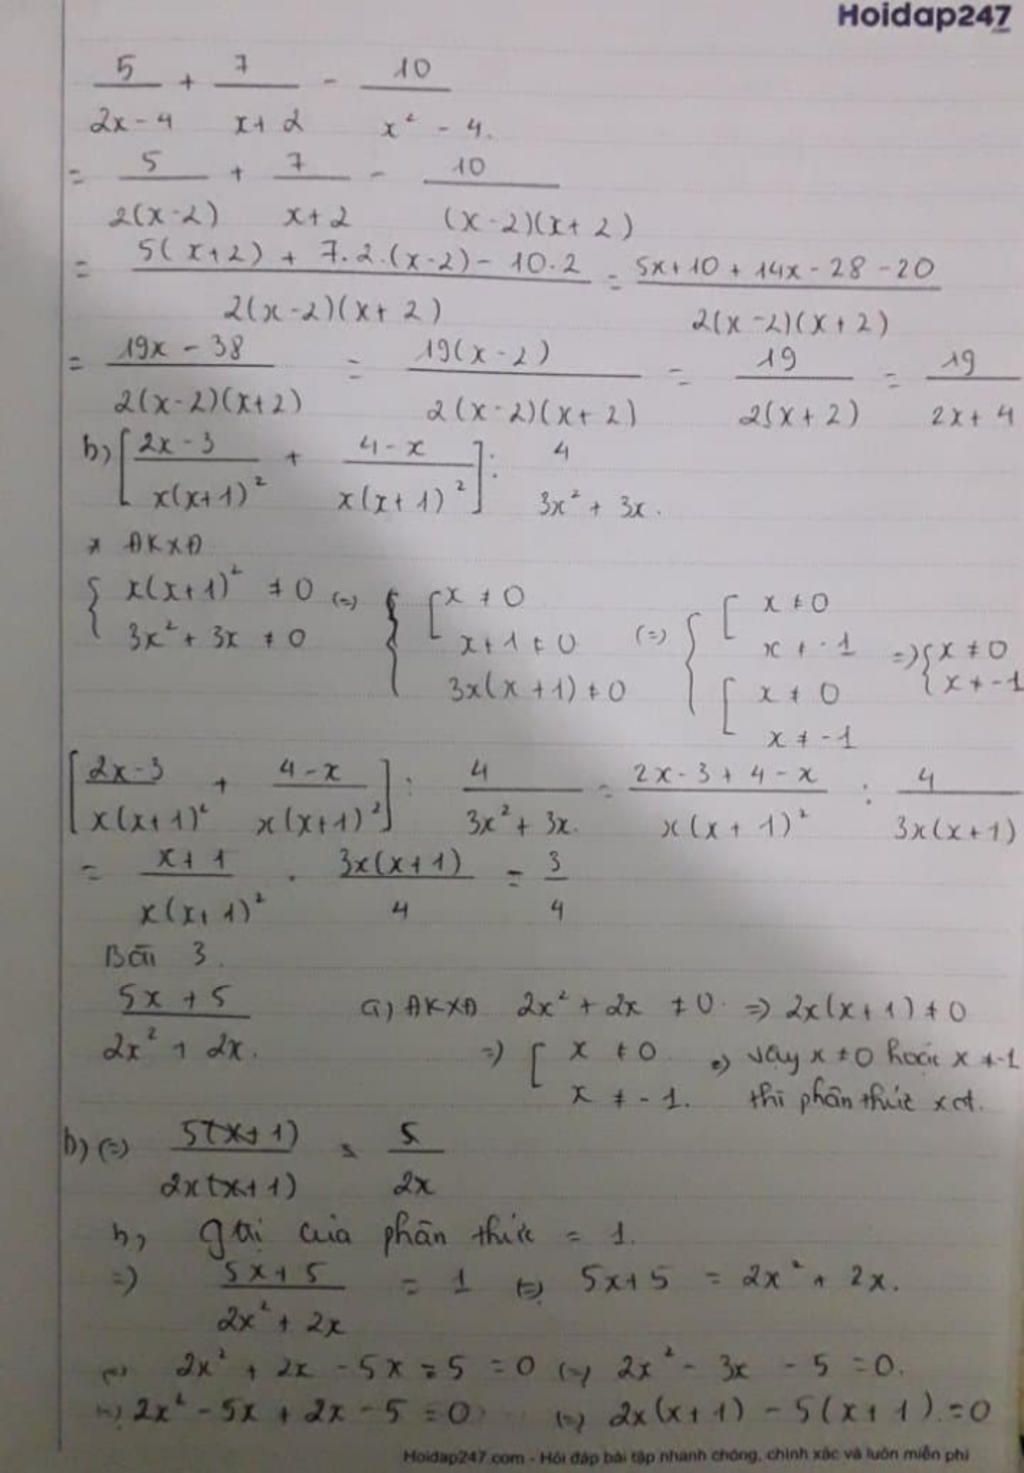 Hoidap247
5/(2x-4) + 7/(x+2) - 10/(x² - 4).
= 5/(2(x-2)) + 7/(x+2) - 10/((x-2)(x+2))
= (5(x+2) + 7.2.(x-2) - 10.2)/(2(x-2)(x+2)) = (5x+10+14x-28-20)/(2(x-2)(x+2))
= (19x-38)/(2(x-2)(x+2)) = 19(x-2)/(2(x-2)(x+2)) = 19/(2(x+2)) = 19/(2x+4)
b) [(2x-3)/(x(x+1)²) + (4-x)/(x(x+1)²)] : 4/(3x² + 3x).
* ĐKXĐ
{ x(x+1)² ≠ 0 ; 3x² + 3x ≠ 0 (=) { [ x ≠ 0 ; x+1 ≠ 0 ; 3x(x+1) ≠ 0 (=) { [ x ≠ 0 ; x ≠ -1 ; [ x ≠ 0 ; x ≠ -1 => { x ≠ 0 ; x ≠ -1
[(2x-3)/(x(x+1)²) + (4-x)/(x(x+1)²)] : 4/(3x² + 3x) = (2x-3+4-x)/(x(x+1)²) : 4/(3x(x+1))
= (x+1)/(x(x+1)²) . 3x(x+1)/4 = 3/4
Bài 3.
(5x+5)/(2x² + 2x). a) ĐKXĐ 2x² + 2x ≠ 0 => 2x(x+1) ≠ 0
=> [ x ≠ 0 ; x ≠ -1. => vậy x ≠ 0 hoặc x ≠ -1
thì phân thức xđ.
b) (=) 5(x+1)/(2x(x+1)) = 5/(2x)
b, giá trị của phân thức = 1.
=> (5x+5)/(2x² + 2x) = 1 (=) 5x+5 = 2x² + 2x.
(=) 2x² + 2x - 5x - 5 = 0 (=) 2x² - 3x - 5 = 0.
(=) 2x² - 5x + 2x - 5 = 0 (=) 2x(x+1) - 5(x+1) = 0
Hoidap247.com - Hỏi đáp bài tập nhanh chóng, chính xác và luôn miễn phí